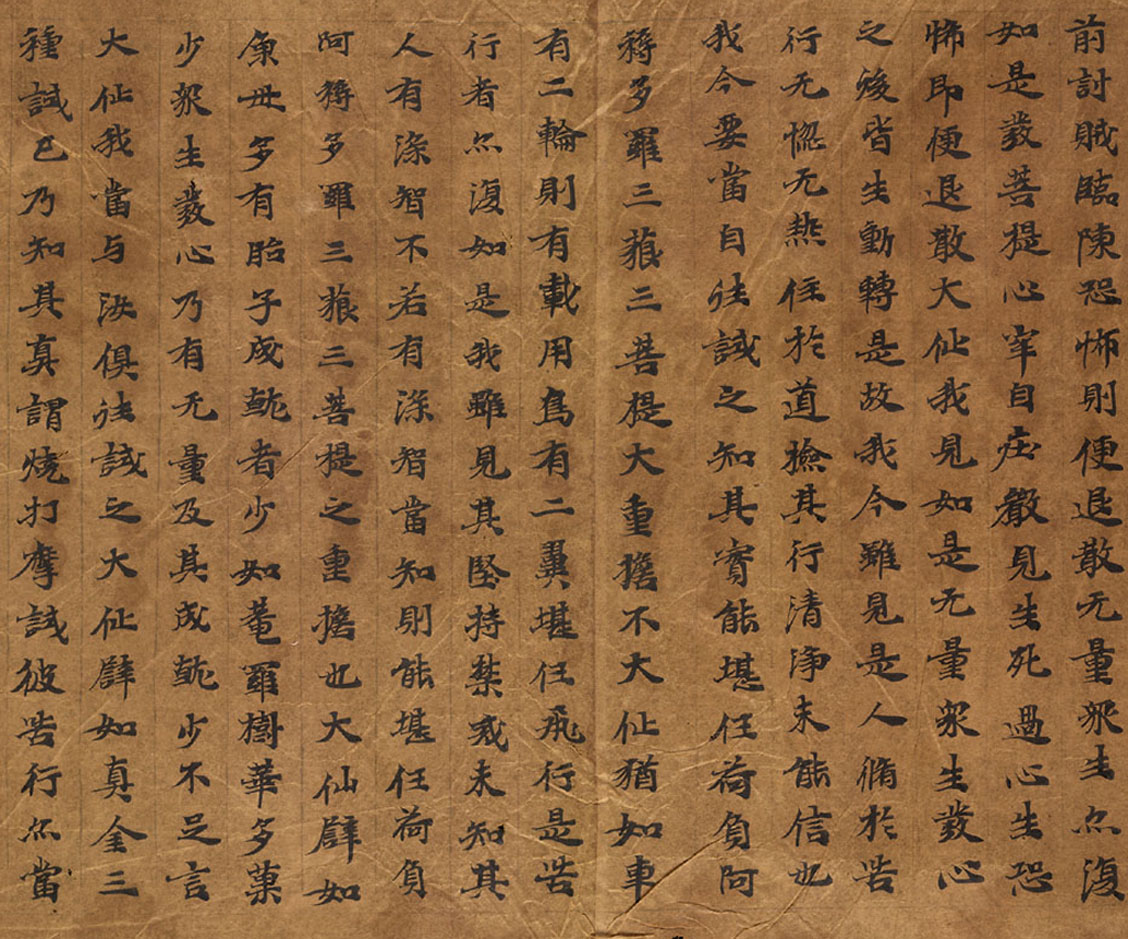 前討賊臨陳恐怖則便退散无量衆生亦復
如是發菩提心牢自庄嚴見生死過心生恐
怖即便退散大仙我見如是无量衆生發心
之後皆生動轉是故我今雖見是人脩於苦
行无惱无熱住於道撿其行清淨未能信也
我今要當自往試之知其實能堪任荷負阿
耨多羅三藐三菩提大重擔不大仙猶如車
有二輪則有載用鳥有二翼堪任飛行是苦
行者亦復如是我雖見其堅持禁戒未知其
人有深智不若有深智當知則能堪任荷負
阿耨多羅三藐三菩提之重擔也大仙譬如
魚母多有胎子成就者少如菴羅樹華多菓
少衆生發心乃有无量及其成就少不足言
大仙我當与汝俱往試之大仙譬如真金三
種試已乃知其真謂燒打摩試彼苦行亦當